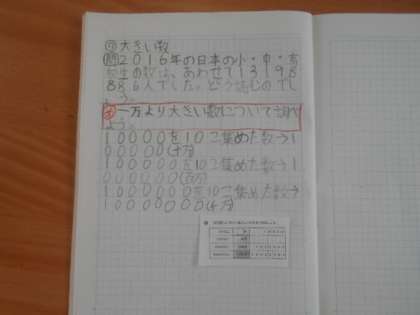 ㋐大きい数
㋄2016年の日本の小・中・高
校生の数は、あわせて13198
886人でした。どう読むのでし
ょう。
一万より大きい数について調べ
よう。
10000を10こ集めた数→1
00000(十万)
100000を10こ集めた数→1
000000(百万)
1000000を10こ集めた数→
10000000(千万)